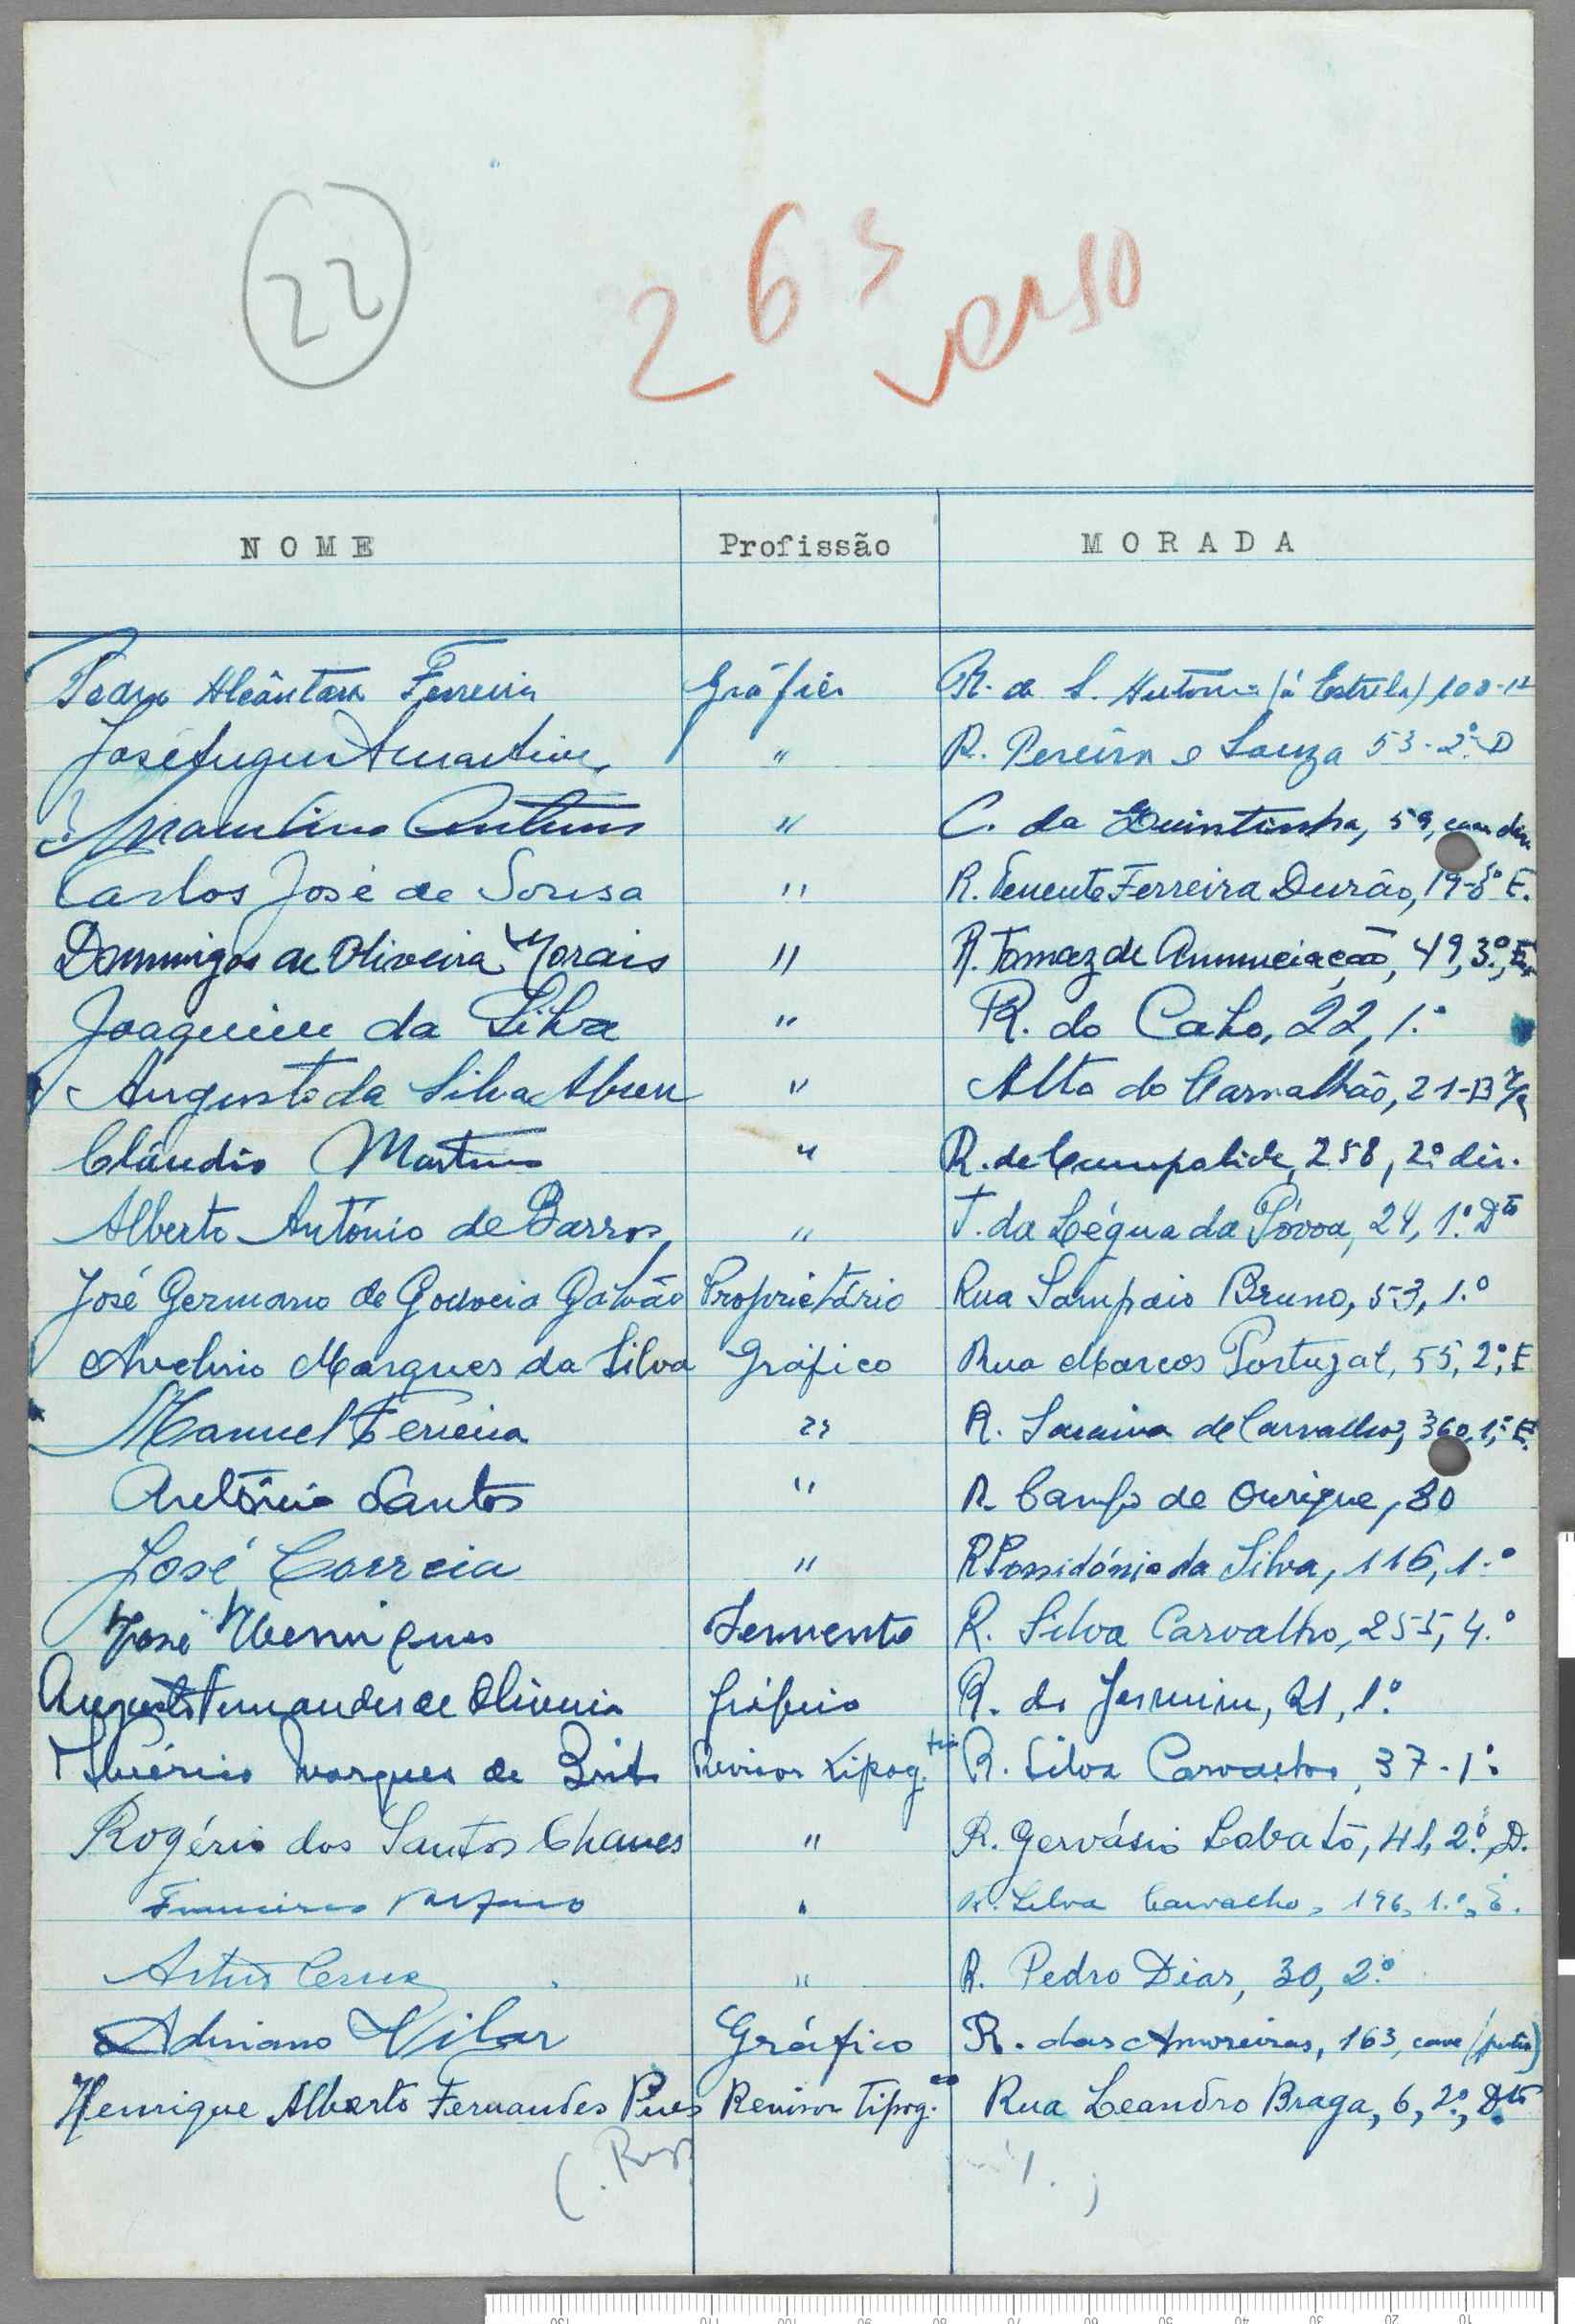 22
263
verso
NOME Profissão MORADA
Pedro Alcântara Ferreira Gráfico R. de S. António (à Estrela) 100-1º
José Martins " R. Pereira e Souza 53-2º D
Antunes " C. da Quintinha, 59,
Carlos José de Sousa " R. Tenente Ferreira Durão, 19- E.
Domingos de Oliveira Morais " R. Tomaz de Annunciação, 49, 3.º, E.
Joaquim da Silva " R. do Cabo, 22, 1.º
Augusto da Silva Abreu " Alto do Carvalhão, 21-B
Cláudio Martins " R. de Campolide, 258, 2º dir.
Alberto António de Barros " T. da Légua da Póvoa, 24, 1.º Dto
José Germano de Gouveia Galvão Proprietário Rua Sampaio Bruno, 53, 1.º
Avelino Marques da Silva Gráfico Rua Marcos Portugal, 55, 2º, E
Manuel Ferreira " R. Saraiva de Carvalho, 360, 1.º E.
António Santos " R. Campo de Ourique, 80
José Correia " R. Possidónio da Silva, 116, 1.º
José Henriques Servente R. Silva Carvalho, 255, 4.º
Augusto Fernandes de Oliveira Gráfico R. do Jasmim, 21, 1.º
Marques de Brito Revisor tipog. R. Silva Carvalho, 37-1º
Rogério dos Santos Chaves " R. Gervásio Lobato, 41, 2.º, D.
Francisco " R. Silva Carvalho, 196, 1.º, E.
Artur " R. Pedro Dias, 30, 2.º
Adriano Vilar Gráfico R. das Amoreiras, 163, cave
Henrique Alberto Fernandes Pires Revisor Tipog.co Rua Leandro Braga, 6, 2º, Dto